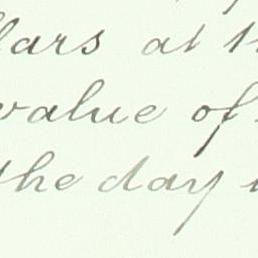 lars at
value of
the day